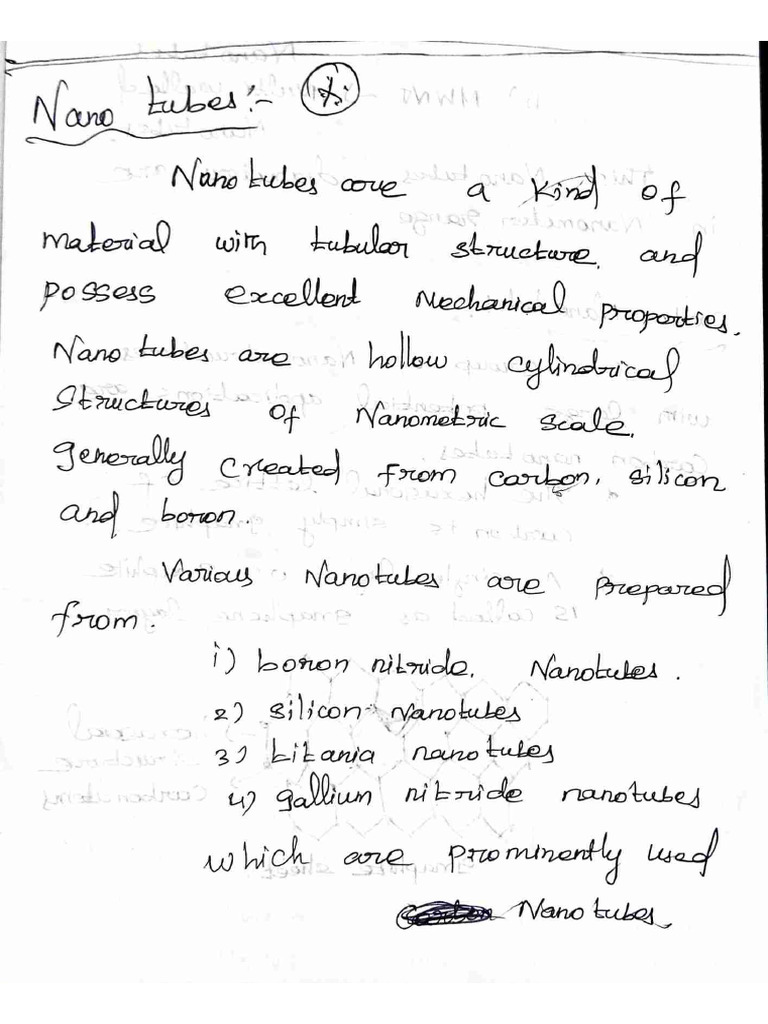 Nano tubes :-
Nano tubes are a kind of
material with tubular structure. and
possess excellent Mechanical properties.
Nano tubes are hollow cylindrical
Structures of Nanometric scale.
generally created from carbon, silicon
and boron.
Various Nanotubes are prepared
from.
i) boron nitride. Nanotubes.
2) silicon Nanotubes
3) titania nanotubes
4) gallium nitride nanotubes
which are prominently used
Nano tubes.